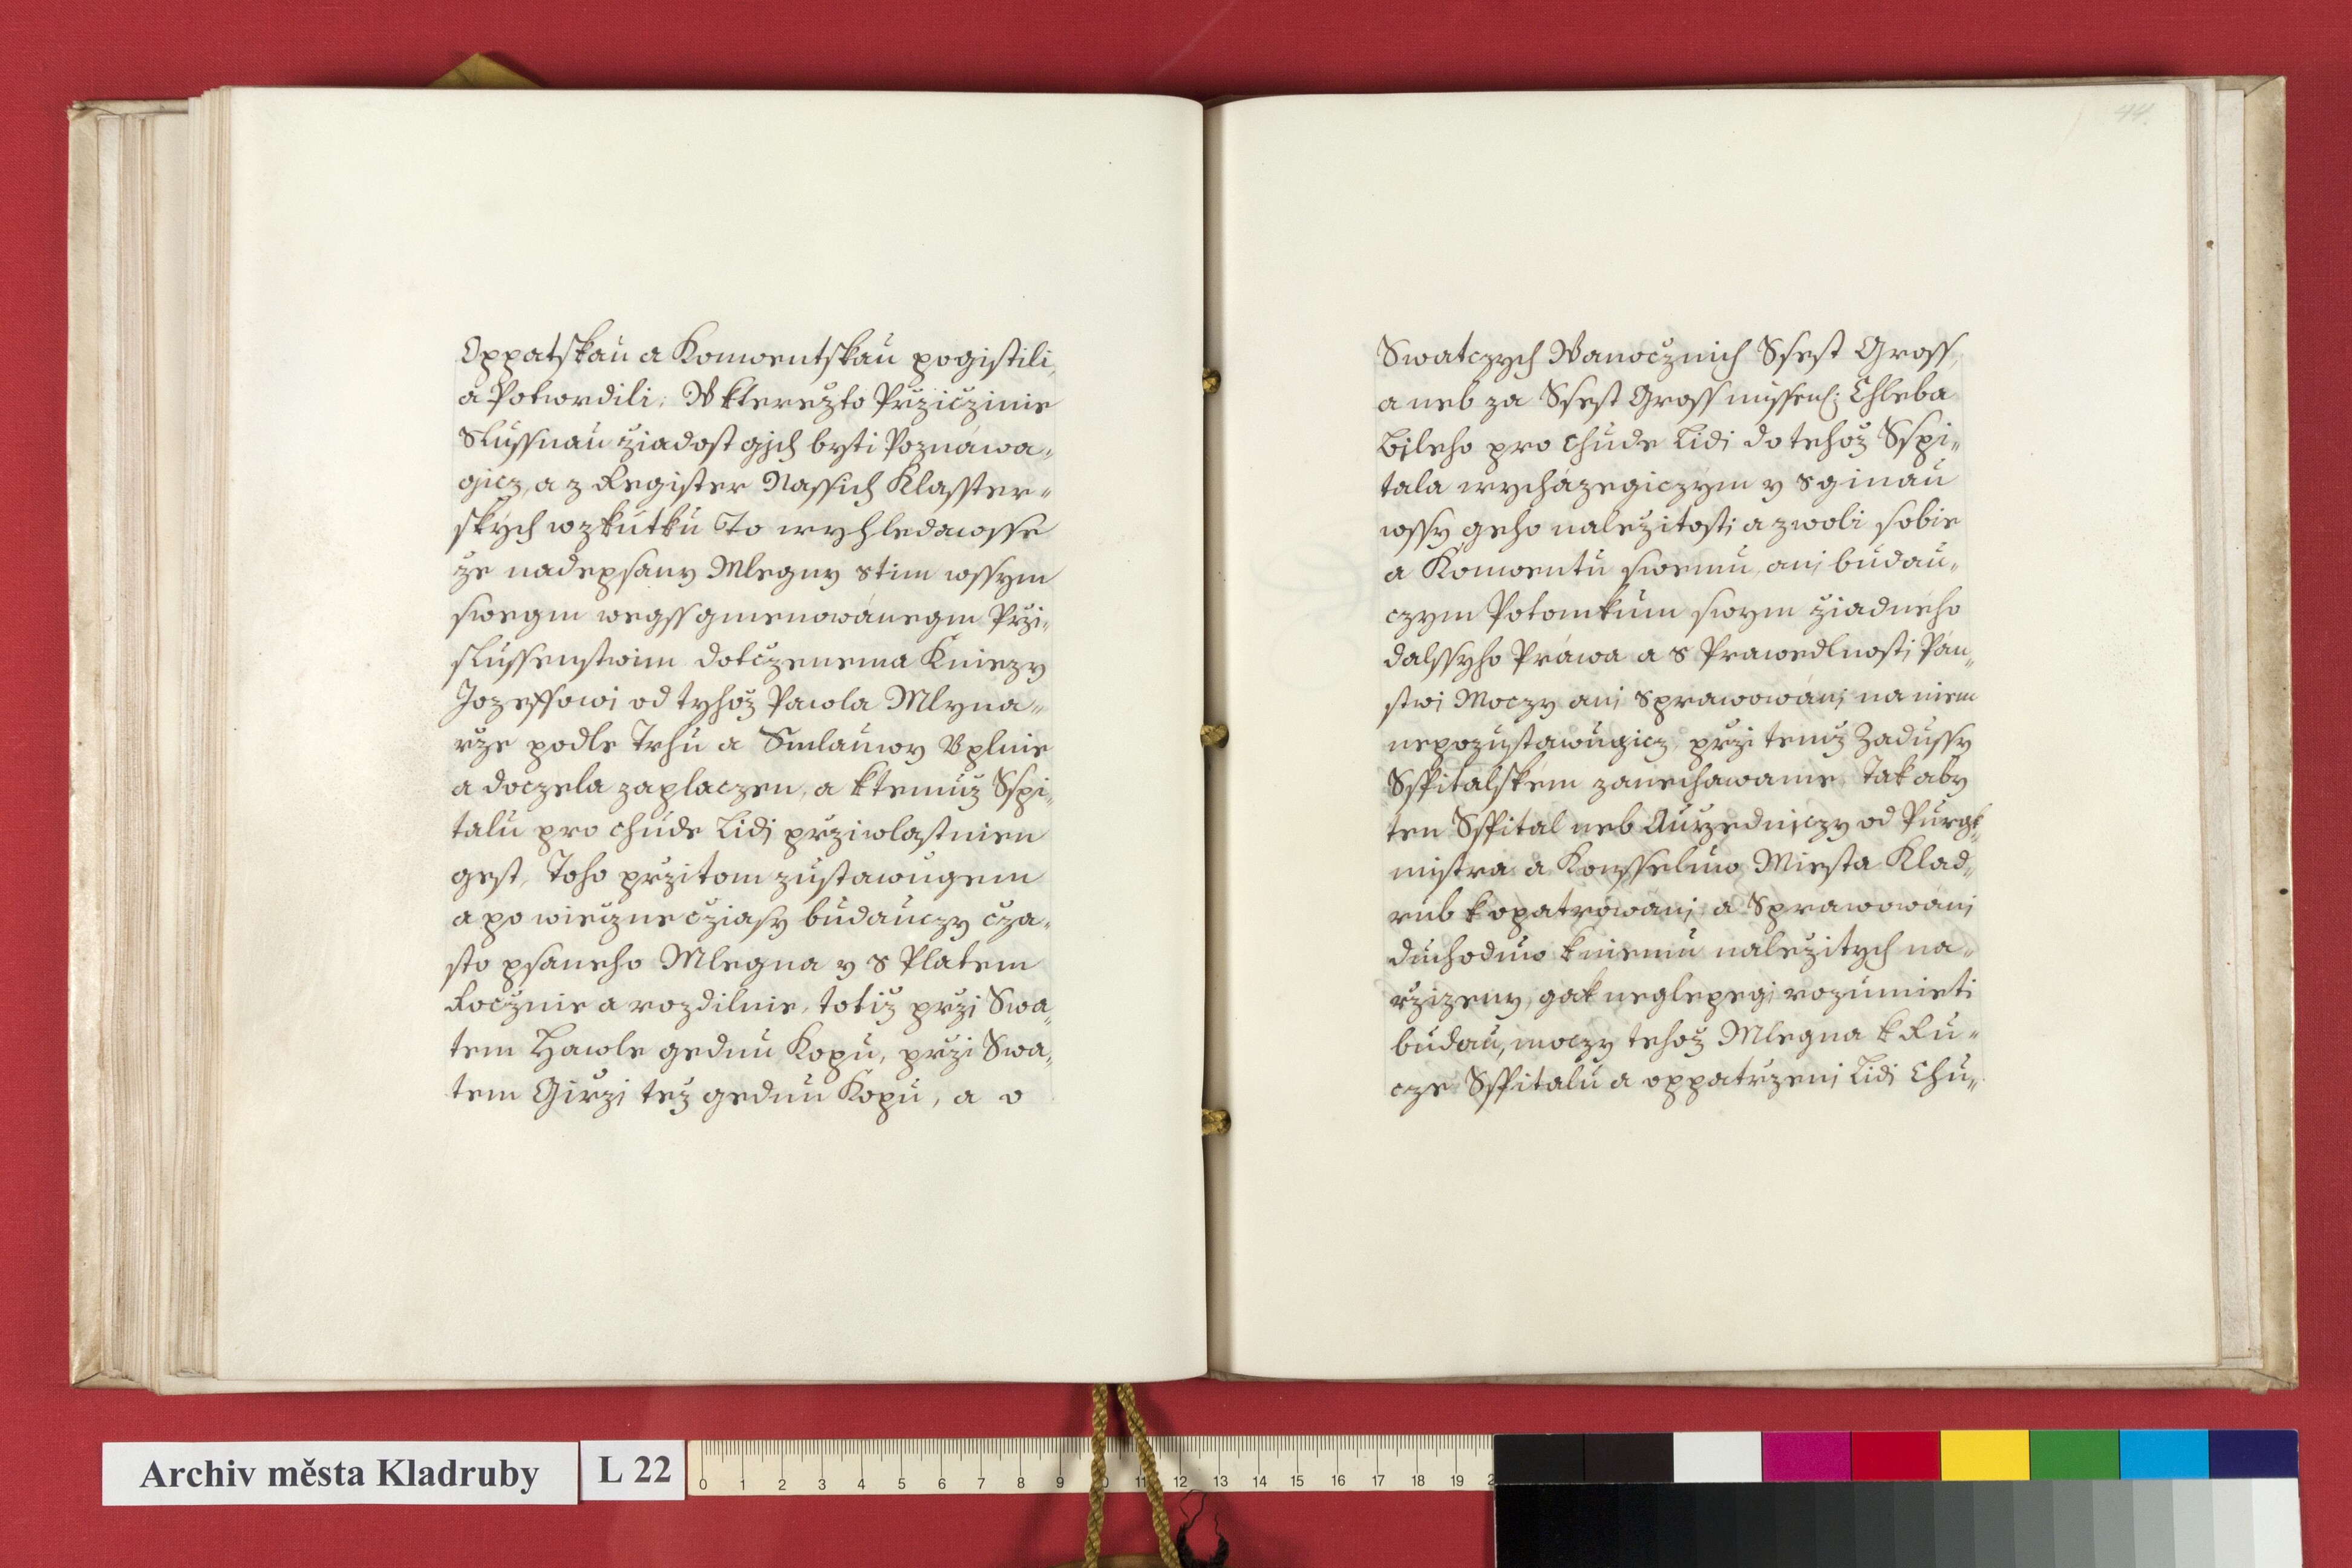 Oppatskau a Konwentskau pogistili,
a Potwrdili: W kterežto Pržicžinie
Slussnau žiadost gjch byti Poznáwa„
gicz, a z Register Nassich Klasster„
ských w zkutku To wyhledawsse
že nadepsany Mlegny s tim wssym
swegm wegss gmenowánegm Prži„
slussenstwim dotčzenema Kniezy
Jozeffowi od tyhož Pawla Mlyna„
rže podle Trhu a Smlauwy Vplnie
a doczela zaplaczen, a k temuž Sspi„
talu pro chude Lidj prziwlastnien
gest, Toho pržitom zustawugem
a po wiečzne cžiasy budauczy cža„
sto psaneho Mlegna y s Platem
Ročžnie a rozdilnie, totiž prži Swa„
tem Hawle gednu Kopu, prži Swa„
tem Giržj tež gednu Kopu, a o
44.
Swatczych Wanočžnich Ssest Gross,
aneb za Ssest Gross missens: Chleba
Bjleho pro chude Lidj do tehož Sspi„
tala wycházegiczým y s ginau
wssy geho naležitostj a zwoli sobie
a Konwentu swemu, anj budau„
czym Potomkum swym žiadného
dalssyho Práwa a s Prawedlnosti Pán„
stwj Moczy anj sprawowánj na niem
nepozustawugicz, prži temž Zadussy
Sspitalském zanechawame, Tak aby
ten Sspital neb Aurzedniczy od Purgk„
mistra a Konsseluw Miesta Klad„
rub k opatrowánj a Sprawowánj
duchoduw k niemu naležitych na„
ržizeny, gak neglepegi rozumieti
budau, moczy tehož Mlegna k Ru„
cze Sspitalu a oppatrženj Lidj Chu„
Archiv města Kladruby
L 22
0 1 2 3 4 5 6 7 8 9 10 11 12 13 14 15 16 17 18 19 2